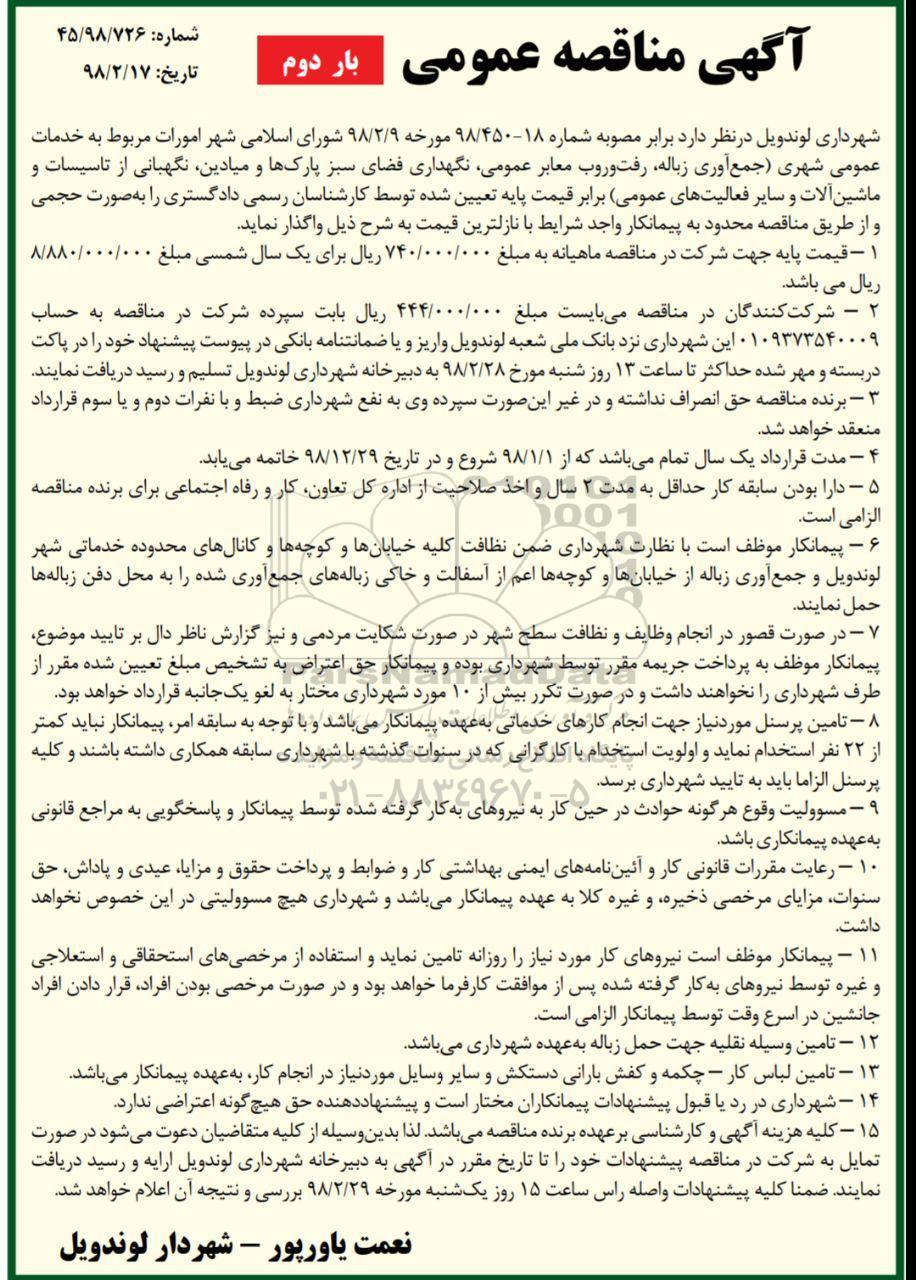 شماره: ۴۵/۹۸/۷۲۶
تاریخ: ۹۸/۲/۱۷
آگهی مناقصه عمومی
بار دوم
شهرداری لوندویل درنظر دارد برابر مصوبه شماره ۱۸-۹۸/۴۵۰ مورخه ۹۸/۲/۹ شورای اسلامی شهر امورات مربوط به خدمات
عمومی شهری (جمع‌آوری زباله، رفت‌وروب معابر عمومی، نگهداری فضای سبز پارک‌ها و میادین، نگهبانی از تاسیسات و
ماشین‌آلات و سایر فعالیت‌های عمومی) برابر قیمت پایه تعیین شده توسط کارشناسان رسمی دادگستری را به‌صورت حجمی
و از طریق مناقصه محدود به پیمانکار واجد شرایط با نازلترین قیمت به شرح ذیل واگذار نماید.
۱ – قیمت پایه جهت شرکت در مناقصه ماهیانه به مبلغ ۷۴۰/۰۰۰/۰۰۰ ریال برای یک سال شمسی مبلغ ۸/۸۸۰/۰۰۰/۰۰۰
ریال می باشد.
۲ – شرکت‌کنندگان در مناقصه می‌بایست مبلغ ۴۴۴/۰۰۰/۰۰۰ ریال بابت سپرده شرکت در مناقصه به حساب
۰۱۰۹۳۷۳۵۴۰۰۰۹ این شهرداری نزد بانک ملی شعبه لوندویل واریز و یا ضمانتنامه بانکی در پیوست پیشنهاد خود را در پاکت
دربسته و مهر شده حداکثر تا ساعت ۱۳ روز شنبه مورخ ۹۸/۲/۲۸ به دبیرخانه شهرداری لوندویل تسلیم و رسید دریافت نمایند.
۳ – برنده مناقصه حق انصراف نداشته و در غیر این‌صورت سپرده وی به نفع شهرداری ضبط و با نفرات دوم و یا سوم قرارداد
منعقد خواهد شد.
۴ – مدت قرارداد یک سال تمام می‌باشد که از ۹۸/۱/۱ شروع و در تاریخ ۹۸/۱۲/۲۹ خاتمه می‌یابد.
۵ – دارا بودن سابقه کار حداقل به مدت ۲ سال و اخذ صلاحیت از اداره کل تعاون، کار و رفاه اجتماعی برای برنده مناقصه
الزامی است.
۶ – پیمانکار موظف است با نظارت شهرداری ضمن نظافت کلیه خیابان‌ها و کوچه‌ها و کانال‌های محدوده خدماتی شهر
لوندویل و جمع‌آوری زباله از خیابان‌ها و کوچه‌ها اعم از آسفالت و خاکی زباله‌های جمع‌آوری شده را به محل دفن زباله‌ها
حمل نمایند.
۷ – در صورت قصور در انجام وظایف و نظافت سطح شهر در صورت شکایت مردمی و نیز گزارش ناظر دال بر تایید موضوع،
پیمانکار موظف به پرداخت جریمه مقرر توسط شهرداری بوده و پیمانکار حق اعتراض به تشخیص مبلغ تعیین شده مقرر از
طرف شهرداری را نخواهند داشت و در صورت تکرر بیش از ۱۰ مورد شهرداری مختار به لغو یک‌جانبه قرارداد خواهد بود.
۸ – تامین پرسنل موردنیاز جهت انجام کارهای خدماتی به‌عهده پیمانکار می‌باشد و با توجه به سابقه امر، پیمانکار نباید کمتر
از ۲۲ نفر استخدام نماید و اولویت استخدام با کارگرانی که در سنوات گذشته با شهرداری سابقه همکاری داشته باشند و کلیه
پرسنل الزاما باید به تایید شهرداری برسد.
۹ – مسوولیت وقوع هرگونه حوادث در حین کار به نیروهای به‌کار گرفته شده توسط پیمانکار و پاسخگویی به مراجع قانونی
به‌عهده پیمانکاری باشد.
۱۰ – رعایت مقررات قانونی کار و آئین‌نامه‌های ایمنی بهداشتی کار و ضوابط و پرداخت حقوق و مزایا، عیدی و پاداش، حق
سنوات، مزایای مرخصی ذخیره، و غیره کلا به عهده پیمانکار می‌باشد و شهرداری هیچ مسوولیتی در این خصوص نخواهد
داشت.
۱۱ – پیمانکار موظف است نیروهای کار مورد نیاز را روزانه تامین نماید و استفاده از مرخصی‌های استحقاقی و استعلاجی
و غیره توسط نیروهای به‌کار گرفته شده پس از موافقت کارفرما خواهد بود و در صورت مرخصی بودن افراد، قرار دادن افراد
جانشین در اسرع وقت توسط پیمانکار الزامی است.
۱۲ – تامین وسیله نقلیه جهت حمل زباله به‌عهده شهرداری می‌باشد.
۱۳ – تامین لباس کار – چکمه و کفش بارانی دستکش و سایر وسایل موردنیاز در انجام کار، به‌عهده پیمانکار می‌باشد.
۱۴ – شهرداری در رد یا قبول پیشنهادات پیمانکاران مختار است و پیشنهاددهنده حق هیچ‌گونه اعتراضی ندارد.
۱۵ – کلیه هزینه آگهی و کارشناسی برعهده برنده مناقصه می‌باشد. لذا بدین‌وسیله از کلیه متقاضیان دعوت می‌شود در صورت
تمایل به شرکت در مناقصه پیشنهادات خود را تا تاریخ مقرر در آگهی به دبیرخانه شهرداری لوندویل ارایه و رسید دریافت
نمایند. ضمنا کلیه پیشنهادات واصله راس ساعت ۱۵ روز یک‌شنبه مورخه ۹۸/۲/۲۹ بررسی و نتیجه آن اعلام خواهد شد.
نعمت یاورپور – شهردار لوندویل
ParsNamadData
پایگاه اطلاع رسانی مناقصه و مزایده
۰۲۱-۸۸۳۴۹۶۷۰-۵